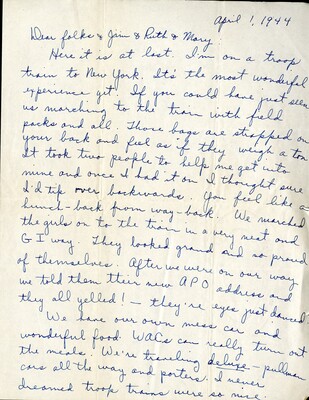 April 1, 1944
Dear folks & Jim & Ruth & Mary.
Here it is at last. I'm on a troop
train to New York. It's the most wonderful
experience yet. If you could have just seen
us marching to the train with field
packs and all. Those bags are strapped on
your back and feel as if they weigh a ton.
It took two people to help me get into
mine and once I had it on I thought sure
I'd tip over backwards. You feel like a
hunch-back from way-back. We marched
the girls on to the train in a very neat and
G I way. They looked grand and so proud
of themselves. After we were on our way
we told them their new APO address and
they all yelled! - they're eyes just danced.
We have our own mess car and
wonderful food. WACs can really turn out
the meals. We're traveling deluxe - pullman
cars all the way and porters. I never
dreamed troop trains were so nice.